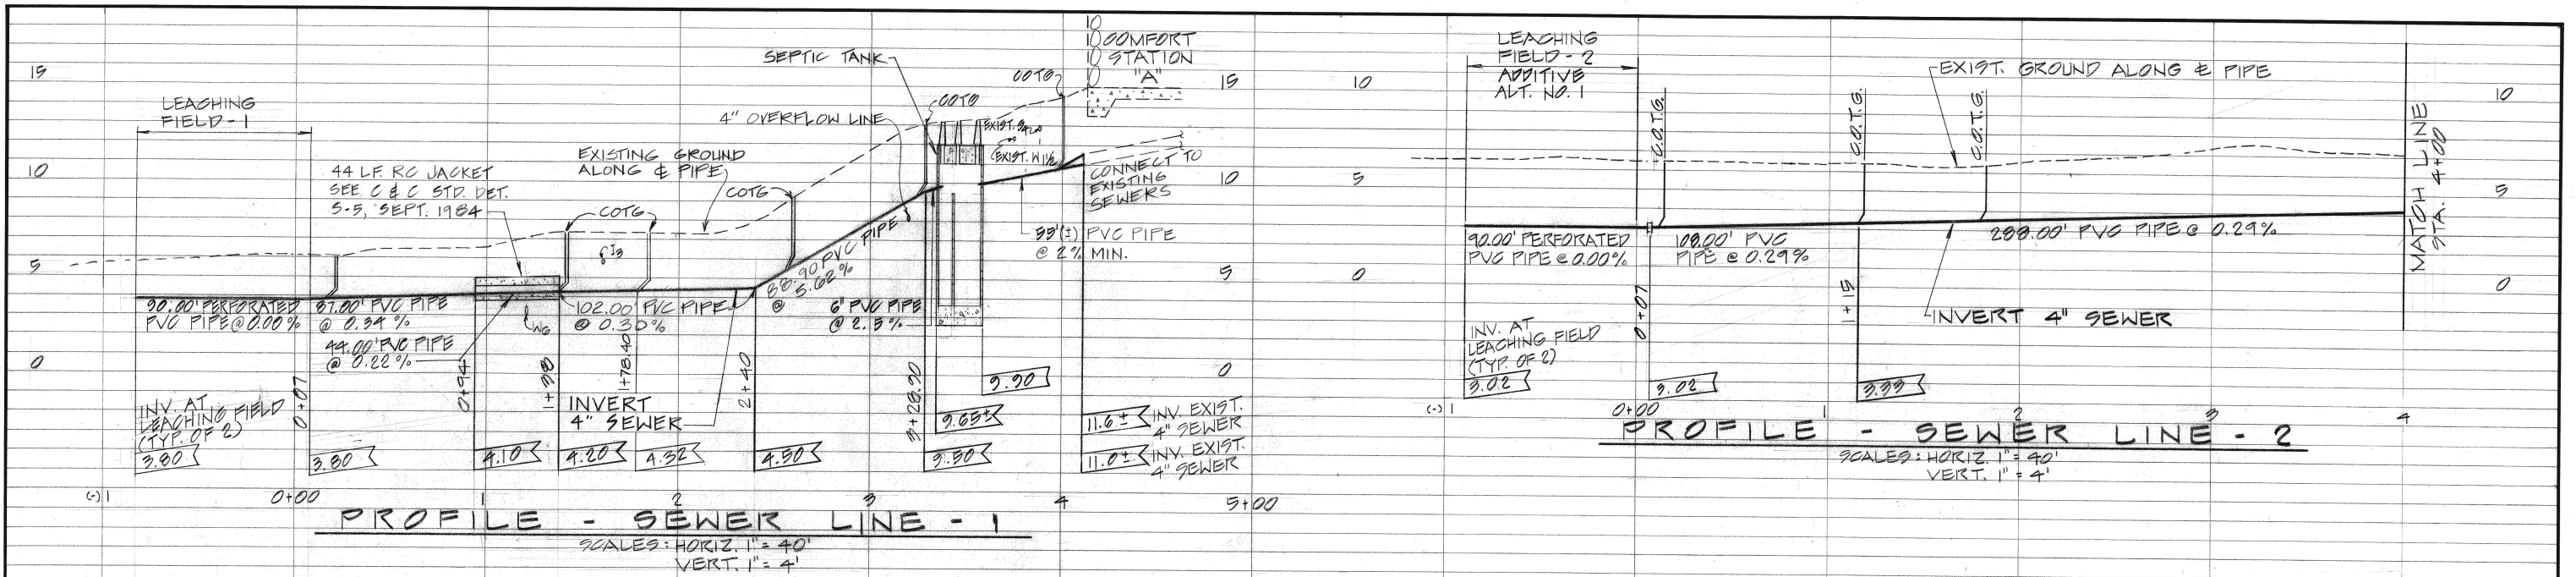 15
10
5
0
LEACHING
FIELD-1
44 LF. RC JACKET
SEE C & C STD. DET.
S-5, SEPT. 1984
EXISTING GROUND
ALONG ℄ PIPE
COTG
COTG
SEPTIC TANK
4" OVERFLOW LINE
COTG
COTG
10
10 COMFORT
10 STATION
10 "A"
EXIST. W 1½
CONNECT TO
EXISTING
SEWERS
55'(±) PVC PIPE
@ 2% MIN.
90.00' PERFORATED
PVC PIPE @ 0.00%
87.00' PVC PIPE
@ 0.34%
44.00' PVC PIPE
@ 0.22%
W6
102.00' PVC PIPE
@ 0.30%
88.90 PVC PIPE
@ 5.62%
6" PVC PIPE
@ 2.5%
INV. AT
LEACHING FIELD
(TYP. OF 2)
3.80
0+07
3.80
0+94
4.10
1+38
4.20
1+78.40
4.32
INVERT
4" SEWER
2+40
4.50
3+28.90
9.90
9.65±
9.50
11.6± INV. EXIST.
4" SEWER
11.0± INV. EXIST.
4" SEWER
15
10
5
0
(-)1
0+00
1
2
3
4
5+00
PROFILE - SEWER LINE - 1
SCALES: HORIZ. 1" = 40'
VERT. 1" = 4'
10
5
0
LEACHING
FIELD-2
ADDITIVE
ALT. NO. 1
C.O.T.G.
C.O.T.G.
C.O.T.G.
EXIST. GROUND ALONG ℄ PIPE
90.00' PERFORATED
PVC PIPE @ 0.00%
108.00' PVC
PIPE @ 0.29%
288.00' PVC PIPE @ 0.29%
INVERT 4" SEWER
INV. AT
LEACHING FIELD
(TYP. OF 2)
3.02
0+07
3.02
1+15
3.33
MATCH LINE
STA. 4+00
10
5
0
(-)1
0+00
1
2
3
4
PROFILE - SEWER LINE - 2
SCALES: HORIZ. 1" = 40'
VERT. 1" = 4'